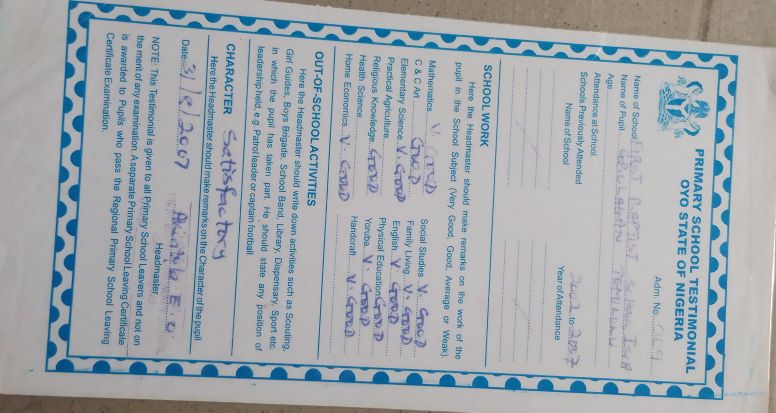 PRIMARY SCHOOL TESTIMONIAL
OYO STATE OF NIGERIA
Adm. No. 269
Name of School FIRST BAPTIST SCHOOL
Name of Pupil
Age
Attendance at School 2002 to 2007
Schools Previously Attended
Name of School Year of Attendance
SCHOOL WORK
Here the Headmaster should make remarks on the work of the
pupil in the School Subject (Very Good, Good, Average or Weak).
Mathematics V. GOOD Social Studies V. GOOD
C & C Art GOOD Family Living V. GOOD
Elementary Science V. GOOD English V. GOOD
Practical Agriculture Physical Education GOOD
Religious Knowledge GOOD Yoruba V. GOOD
Health Science Handcraft V. GOOD
Home Economics V. GOOD
OUT-OF-SCHOOL ACTIVITIES
Here the Headmaster should write down activities such as Scouting,
Girl Guides, Boys Brigade, School Band, Library, Dispensary, Sport etc
in which the pupil has taken part. He should state any position of
leadership held, e.g. Patrol leader or captain football.
CHARACTER Satisfactory
Here the Headmaster should make remarks on the Character of the pupil
Date 31/8/2007
Headmaster
NOTE: This Testimonial is given to all Primary School Leavers and not on
the merit of any examination. A separate Primary School Leaving Certificate
is awarded to Pupils who pass the Regional Primary School Leaving
Certificate Examination.